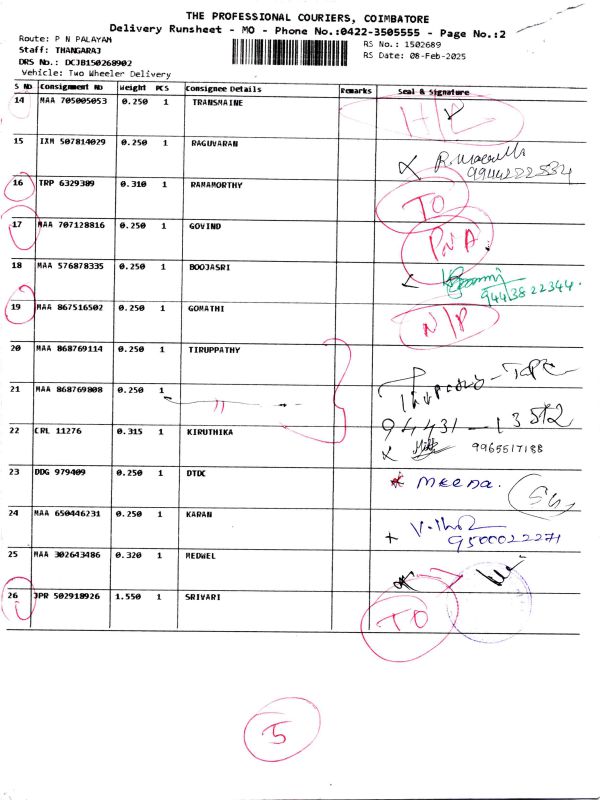 THE PROFESSIONAL COURIERS, COIMBATORE
Delivery Runsheet - MO - Phone No.:0422-3505555 - Page No.:2
Route: P N PALAYAM
RS No.: 1502689
Staff: THANGARAJ
RS Date: 08-Feb-2025
DRS No.: DCJB150268902
Vehicle: Two Wheeler Delivery
S No Consignment No Weight PCS Consignee Details Remarks Seal & Signature
14 MAA 705005053 0.250 1 TRANSMAINE
15 IXM 507814029 0.250 1 RAGUVARAN
9944222534
16 TRP 6329389 0.310 1 RAMAMORTHY TO
17 MAA 707128816 0.250 1 GOVIND PNA.
18 MAA 576878335 0.250 1 BOOJASRI
9443822344.
19 MAA 867516502 0.250 1 GOMATHI N/P
20 MAA 868769114 0.250 1 TIRUPPATHY
21 MAA 868769808 0.250 1 "
94431-13512
22 CRL 11276 0.315 1 KIRUTHIKA
9965517188
23 DDG 979409 0.250 1 DTDC Meena.
24 MAA 650446231 0.250 1 KARAN
9500022271
25 MAA 302643486 0.320 1 MEDWEL
26 JPR 502918926 1.550 1 SRIVARI TO
5